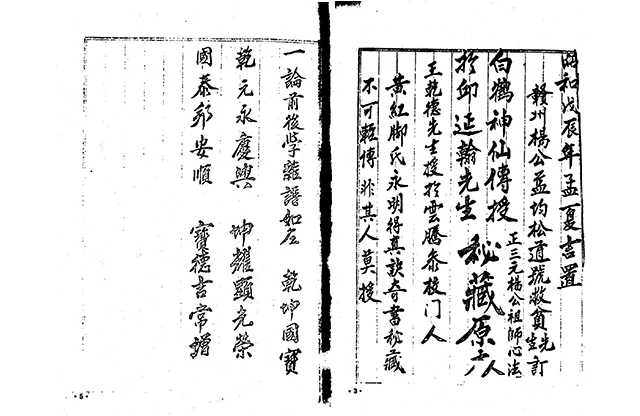 昭和戊辰年孟夏吉置
贛州楊公益均松道號救貧先生訂
正三元楊公祖師心法
白鶴神仙傳授
於邱延翰先生
秘藏原
人
王乾德先生授於雲騰
校门人
黄紅脚氏永明得真訣奇書秘藏
不可輕傳非其人莫授
·3·
一論前後學雜譜如左 乾坤國寶
乾元永慶興 坤耀顯光榮
國泰邦安順 寶德吉常增
·5·